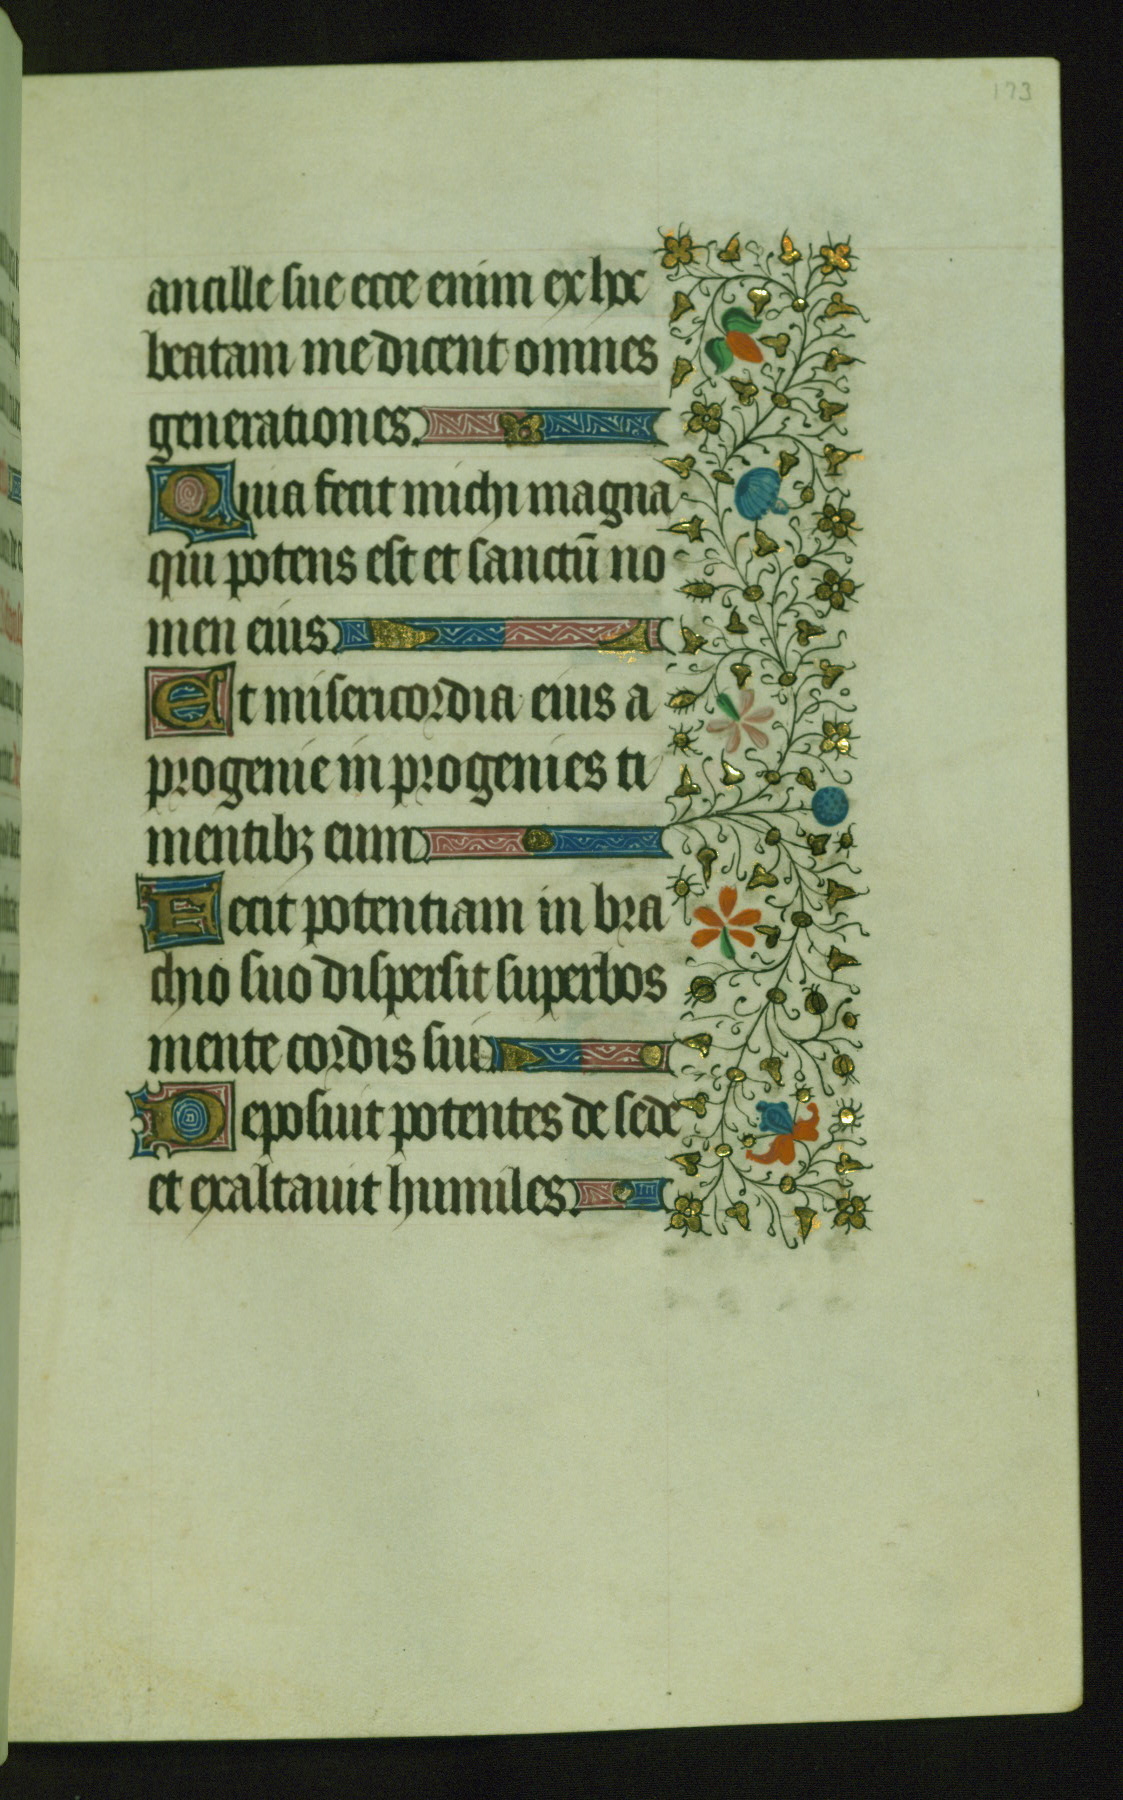 173
ancille sue ecce enim ex hoc
beatam me dicent omnes
generationes.
Quia fecit michi magna
qui potens est et sanctū no
men eius
Et misericordia eius a
progenie in progenies ti
mentibꝫ eum
Fecit potentiam in bra
chio suo dispersit superbos
mente cordis sui
Deposuit potentes de sede
et exaltauit humiles